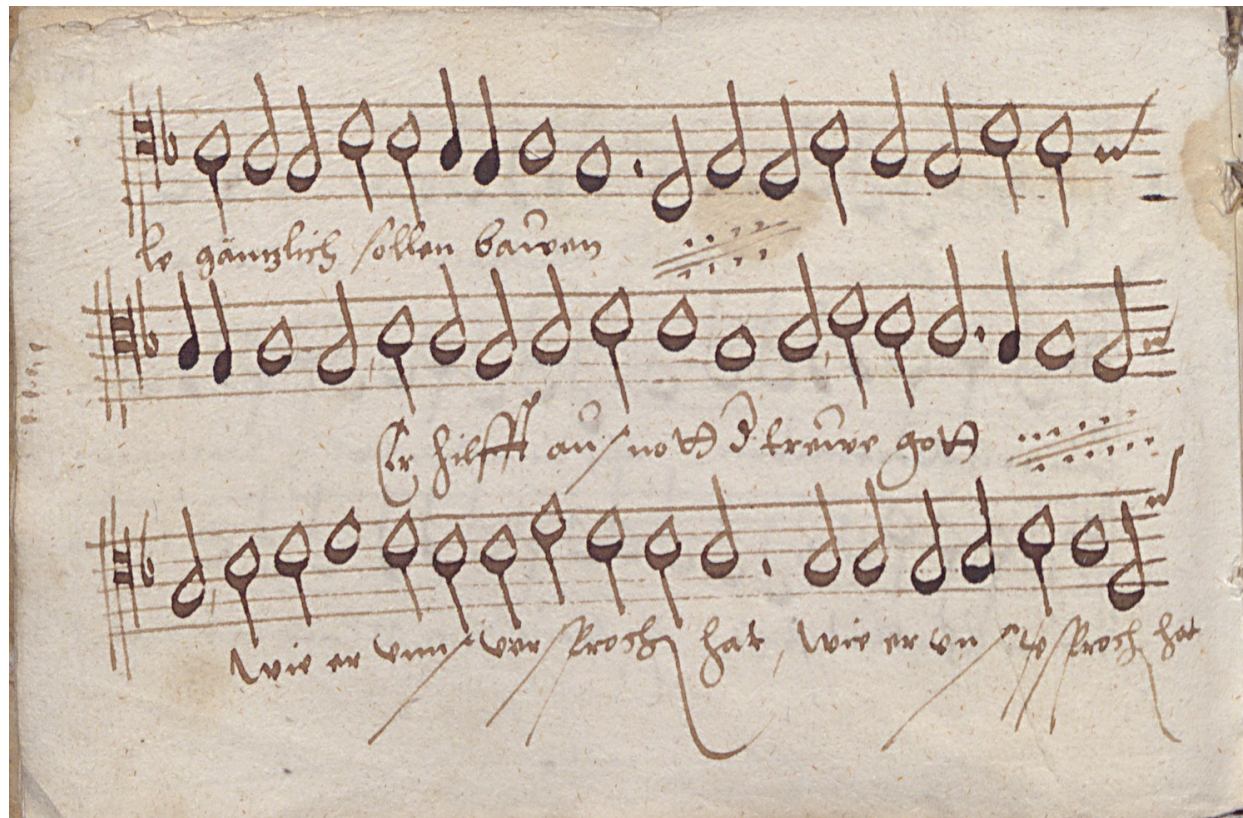 le gäntzlich sollen bauwen
Er hilfft auß nott d treuwe gott
wie er vnnß versproch hat, wie er vnß vsproch hat